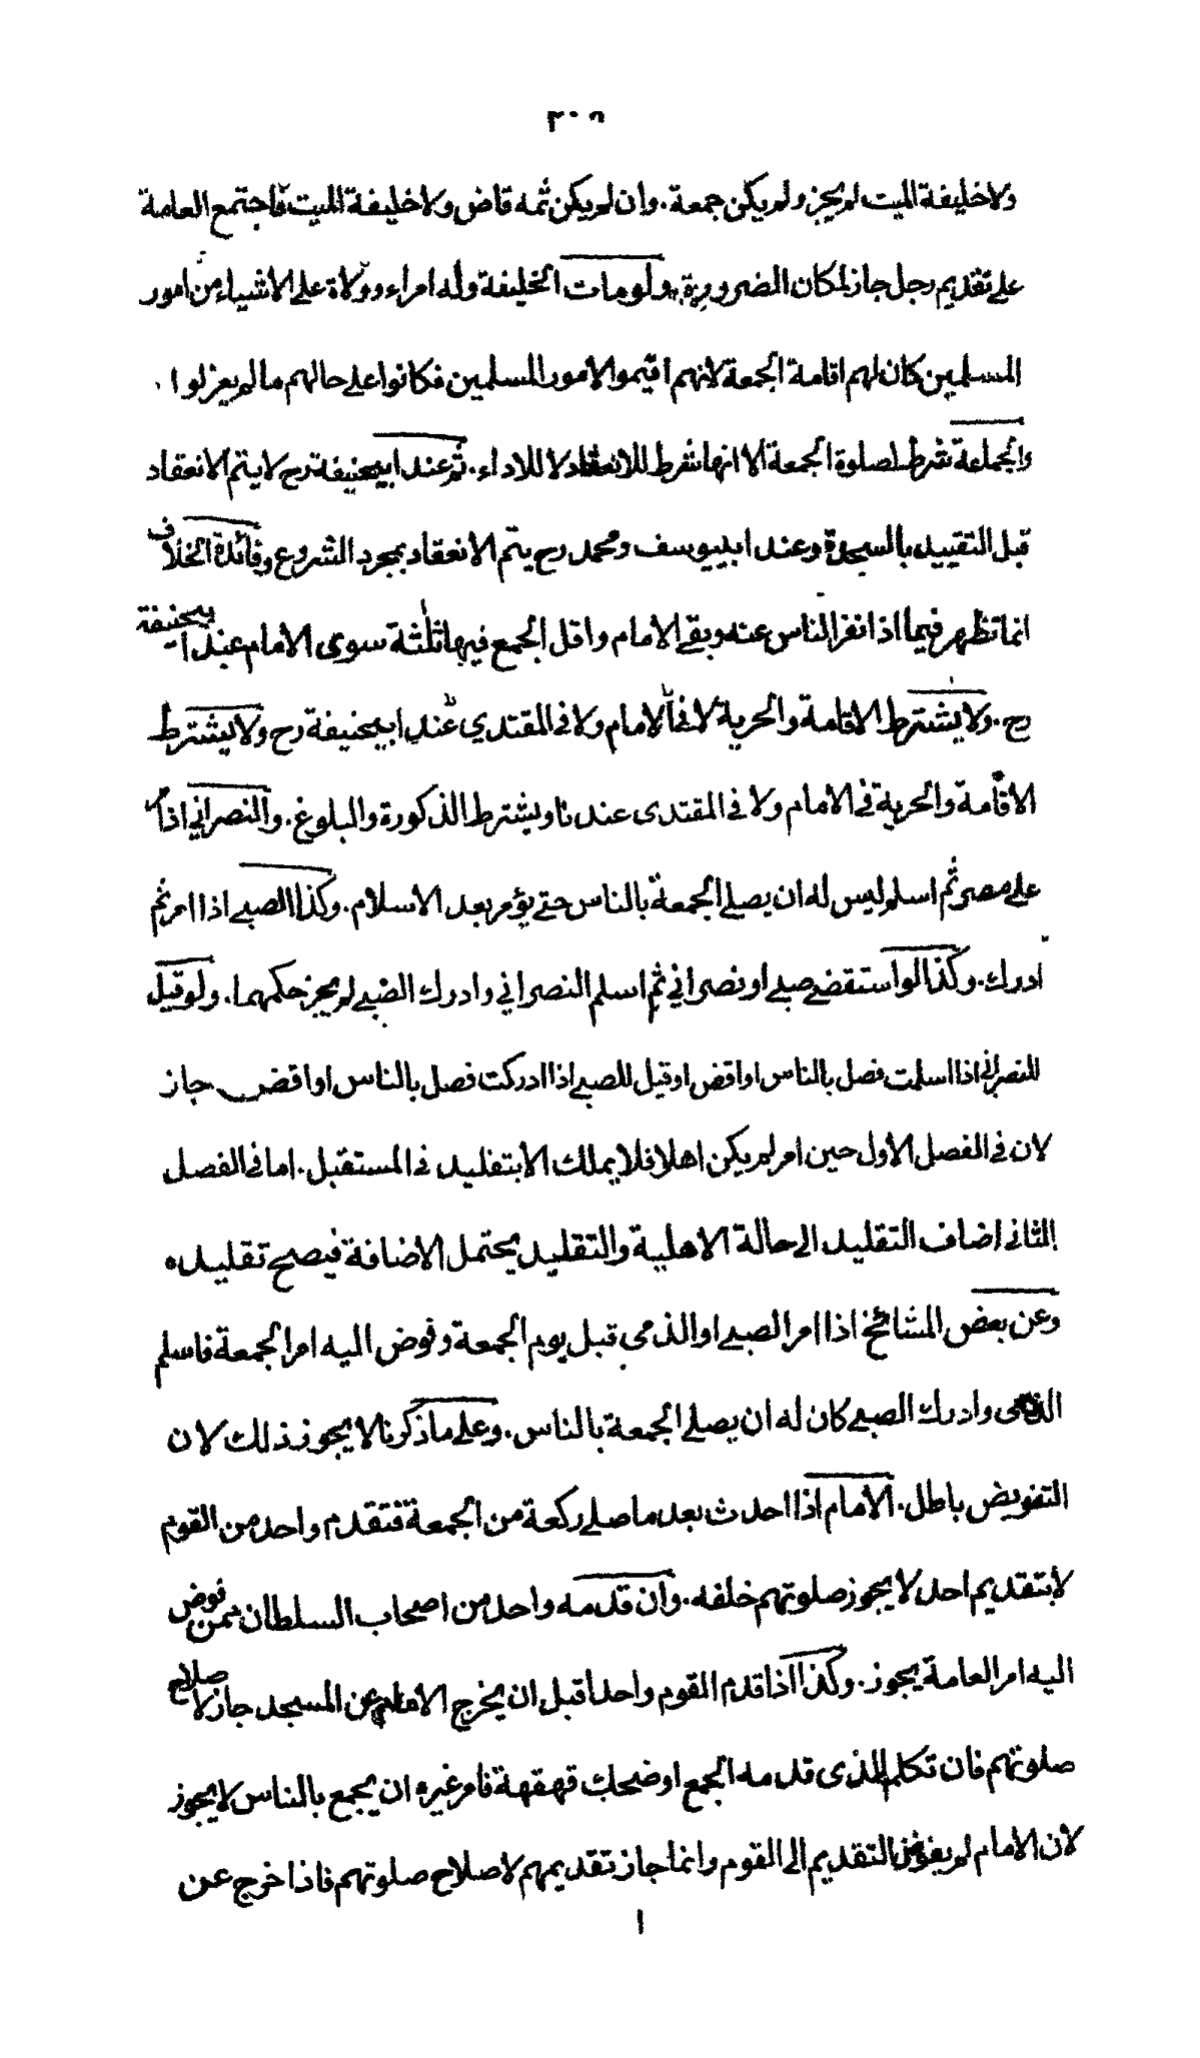 ولا خليفة الميت لم يجز ولم يكن جمعة. وان لم يكن ثمه قاض ولا خليفة الميت فاجتمع العامة
على تقديم رجل جاز لمكان الضرورة. ولو مات الخليفة وله امراء وولاة على الاشياء من امور
المسلمين كان لهم اقامة الجمعة لانهم اقيموا لامور المسلمين فكانوا على حالهم ما لم يعزلوا.
والجماعة شرط لصلوة الجمعة الا انها شرط للانعقاد لا للاداء. ثم عند ابيحنيفة رح لا يتم الانعقاد
قبل التقييد بالسجدة وعند ابييوسف ومحمد رح يتم الانعقاد بمجرد الشروع وفائدة الخلاف
انما تظهر فيما اذا نفر الناس عنه وبقى الامام واقل الجمع فيها ثلثة سوى الامام عند ابيحنيفة
رح. ولا يشترط الاقامة والحرية لا فى الامام ولا فى المقتدي عند ابيحنيفة رح ولا يشترط
الاقامة والحرية فى الامام ولا فى المقتدى عندنا ويشترط الذكورة والبلوغ. والنصراني اذا
على مصر ثم اسلم ليس له ان يصلي الجمعة بالناس حتى يؤمر بعد الاسلام. وكذا الصبي اذا امر ثم
ادرك. وكذا لو استقضى صبي او نصراني ثم اسلم النصراني وادرك الصبي لم يجز حكمهما. ولو قيل
للنصراني اذا اسلمت فصل بالناس او اقض او قيل للصبي اذا ادركت فصل بالناس او اقض جاز
لان فى الفصل الاول حين امر لم يكن اهلا فلا يملك الا بتقليد فى المستقبل. اما فى الفصل
الثانى اضاف التقليد الى حالة الاهلية والتقليد يحتمل الاضافة فيصح تقليده
وعن بعض المشائخ اذا امر الصبي او الذمي قبل يوم الجمعة وفوض اليه امر الجمعة فاسلم
الذمى وادرك الصبي كان له ان يصلي الجمعة بالناس. وعلى ما ذكرنا لا يجوز ذلك لان
التفويض باطل. الامام اذا احدث بعد ما صلى ركعة من الجمعة فتقدم واحد من القوم
لا بتقديم احد لا يجوز صلوتهم خلفه. وان قدمه واحد من اصحاب السلطان ممن فوض
اليه امر العامة يجوز. وكذا اذا قدم القوم واحدا قبل ان يخرج الامام عن المسجد جاز لاصلاح
صلوتهم فان تكلم الذى قدمه الجمع او ضحك قهقهة فامر غيره ان يجمع بالناس لا يجوز
لان الامام لم يفوض التقديم الى القوم وانما جاز تقديمهم لاصلاح صلوتهم فاذا خرج عن
ا